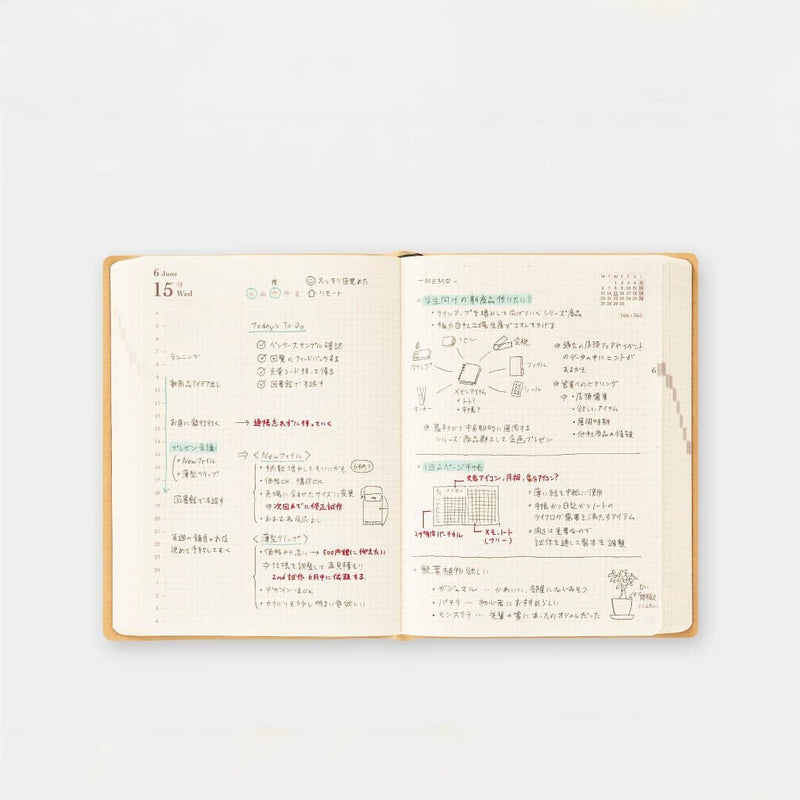 6 June
15 Wed
スッキリ目覚めた
リモート
Today's To Do
ペンケースサンプル確認
回覧のフィードバックする
充電コード持って帰る
図書館で本返す
ランニング
新商品アイデア出し
お昼に銀行行く → 通帳忘れずに持っていく
プレゼン会議!
• Newファイル
• 薄型クリップ
図書館で本返す
来週の鎌倉のお店
決めて予約しておく
⇒ 〈Newファイル〉
• 柄数増やしてもいいかも
• 価格OK、構成OK
• 売場に合わせたサイズに変更
⇒ 次回までに修正試作
• おおむね反応よし
〈薄型クリップ〉
• 価格やや高い → 500円程に抑えたい
⇒ 仕様を調整して再見積もり
2nd試作 6月中に依頼する。
• デザインはOK
• カラバリもう少し明るい色欲しい
- MEMO -
学生向けの新商品作りたい!
• ラインアップを増やして広げていくシリーズ商品
• 極力自社工場生産でコストを下げる
クリップ
フセン
定規
ファイル
シール
マーカー
メインアイテム
• トレ?
• 手帳?
過去の店頭フェアやイベント
のデータの中にヒントが
あるかも
営業へのヒアリング
⇒ • 店頭需要
• 欲しいアイテム
• 展開時期
• 他社商品の情報
シリーズ商品群として企画プレゼン
166/365
6
1日2ページ手帳
天気アイコン、月相、気分アイコン?
24時間バーチカル
メモ、ノート
(フリー)
• 薄い紙を中紙に使用
• 手帳かつ日記かつノートの
ライフログ需要を満たすアイテム
• 開きは重要なので
試作を通して製本を調整
観葉植物欲しい
• ガジュマル … かわいい、部屋にないみどり
• パキラ … 初心者におすすめらしい
• モンステラ … 先輩の家にあったのオシャレだった